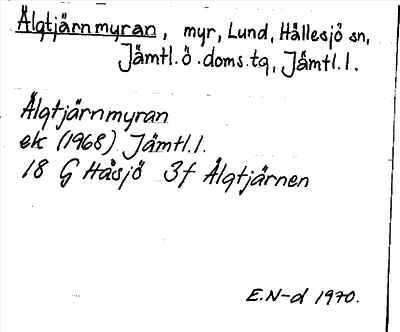 Älgtjärnmyran, myr, Lund, Hällesjö sn,
Jämtl.ö.doms.tg, Jämtl.l.
Älgtjärnmyran
ek (1968) Jämtl.l.
18 G Håsjö 3f Älgtjärnen
E.N-d 1970.